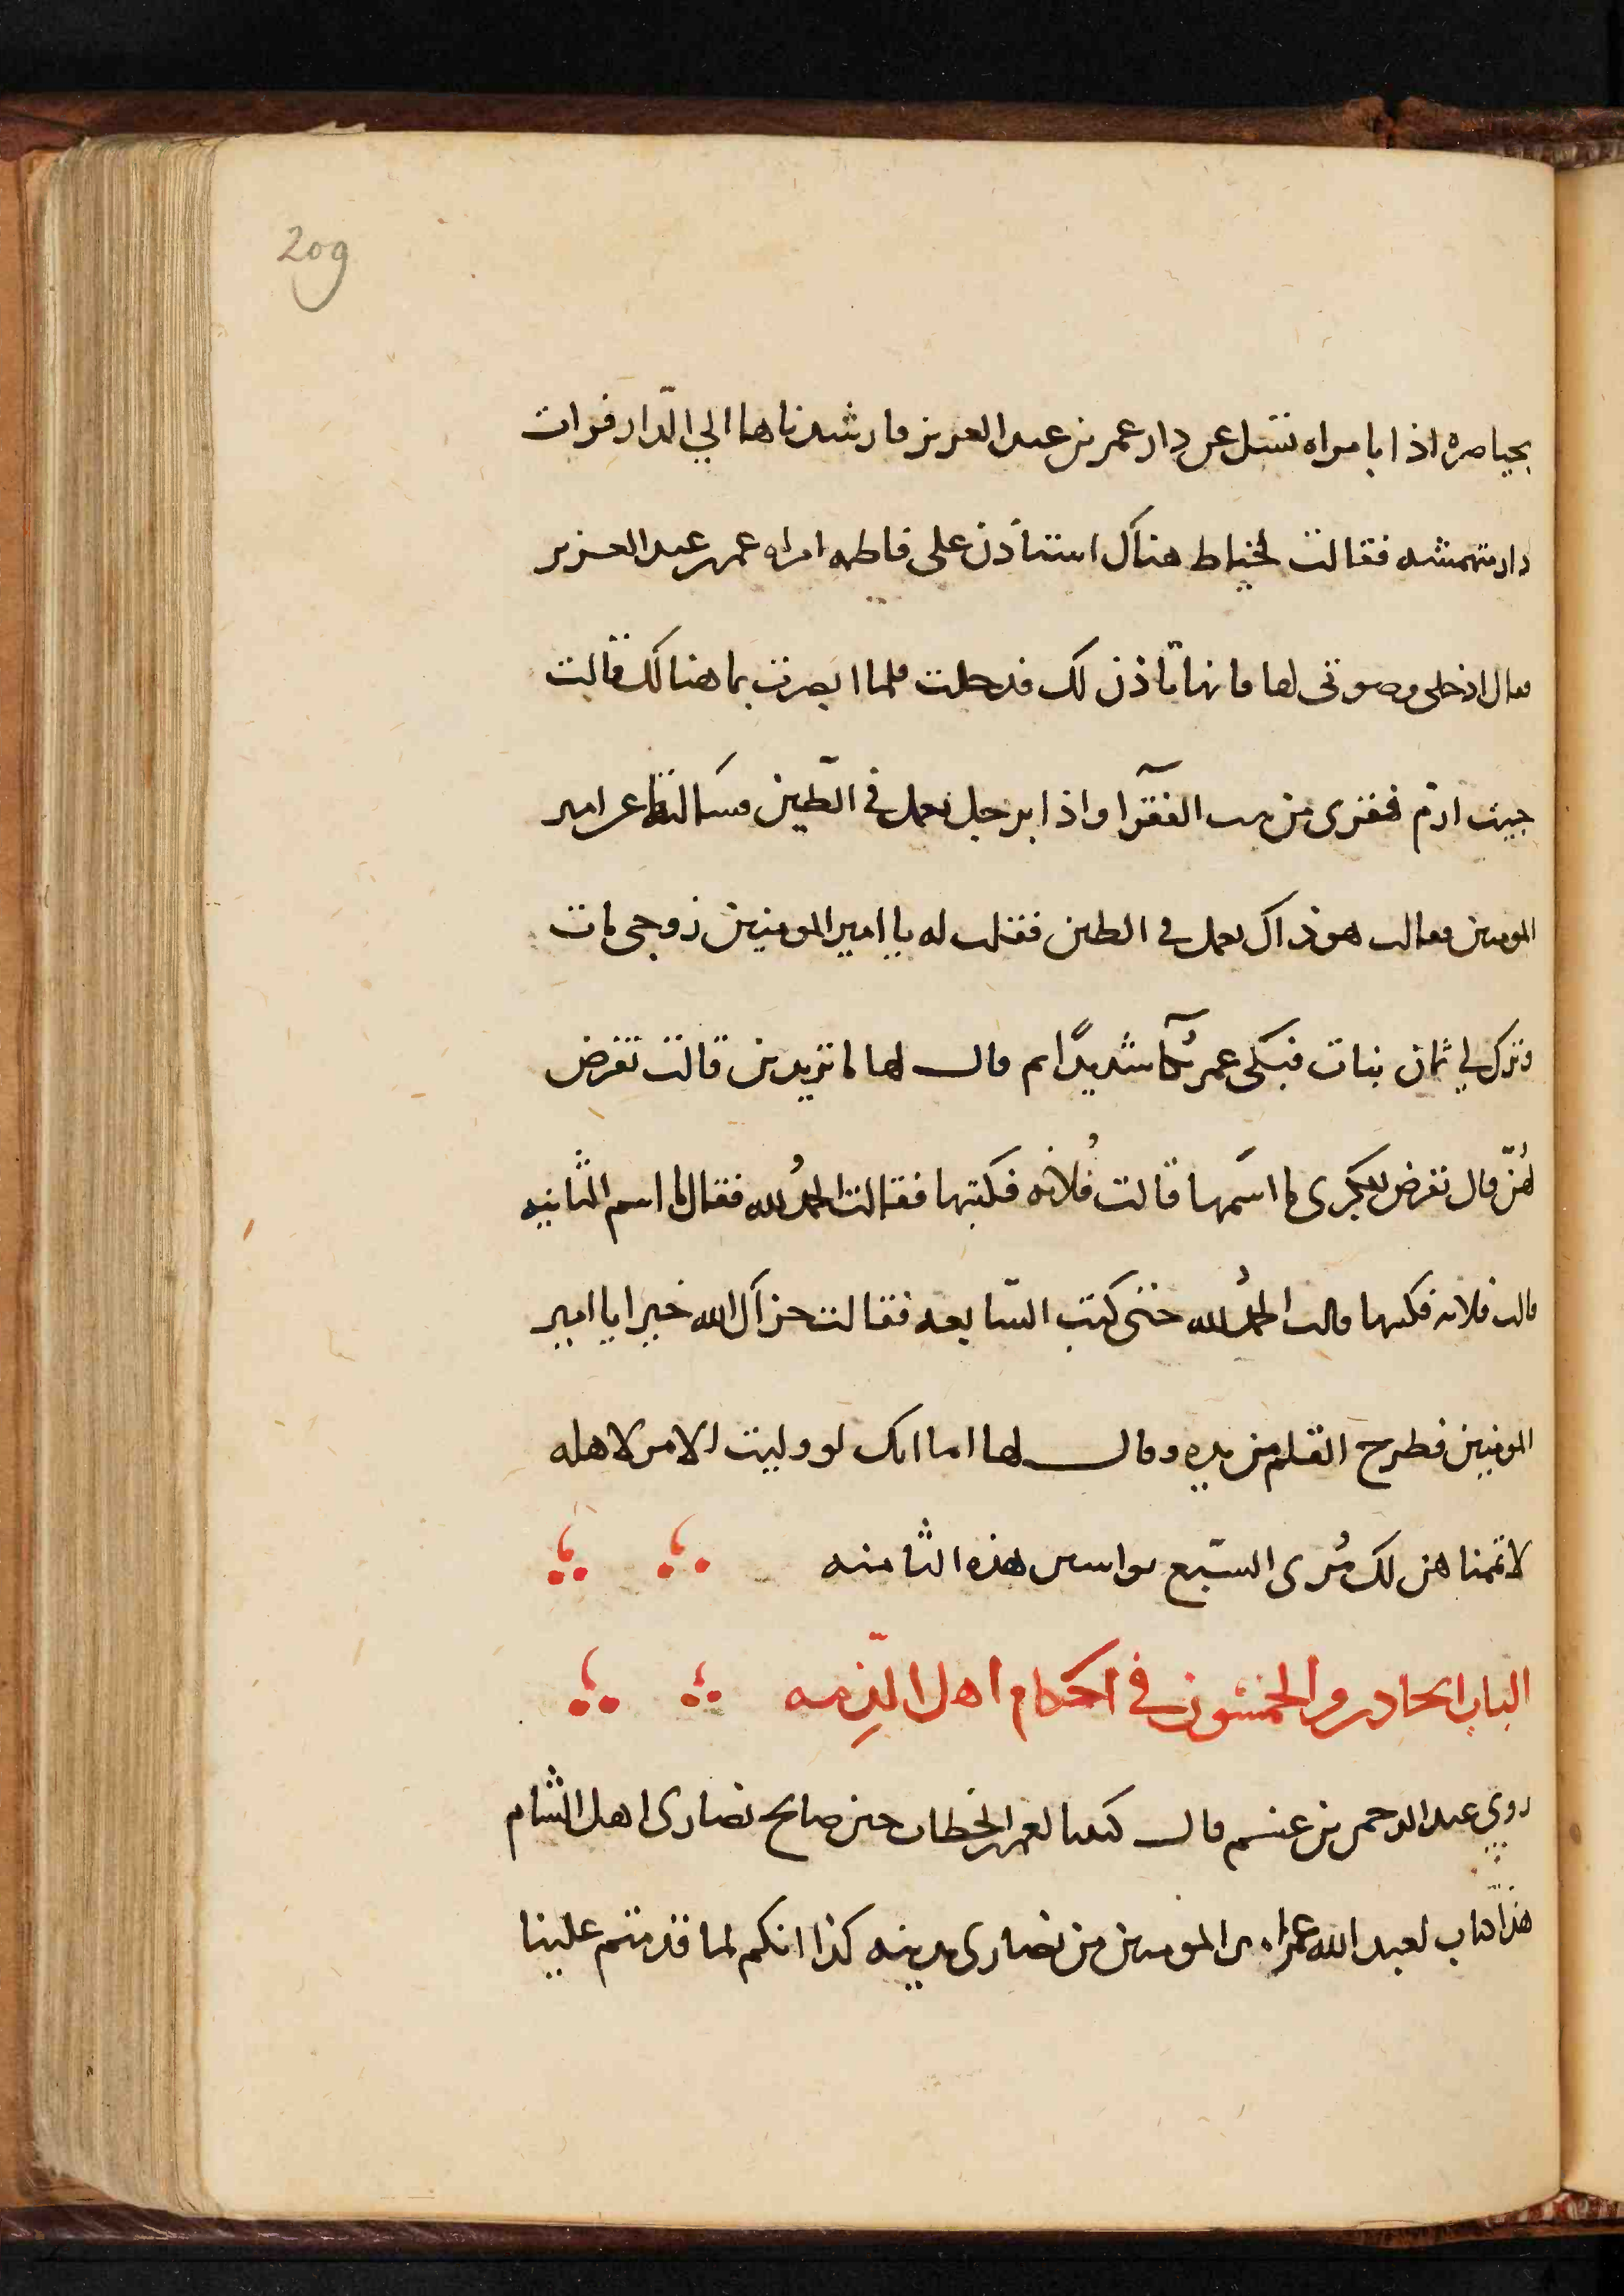 209
بخناصرة اذا بامراه تسل عن دار عمر بن عبد العزيز فارشدناها الي الدّار فرات
دار متهمشه فقالت لخياط هناك استاذن على فاطمه امراه عمر بن عبد العزيز
فقال ادخلى وصوتى لها فانها تاذن لك فدخلت فلما ابصرت بما هنالك قالت
جيت ارم فقرى من بيت الفقرآ واذا برجل يعمل في الطّين فسالتها عن امير
المومنين فقالت هو ذاك يعمل في الطين فقلت له يا امير المومنين زوجى مات
وترك لي ثمان بنات فبكى عمر بُكآ شديدًا ثم قال لها ما تريدين قالت تفرض
لهُنّ قال نفرض للكبرى ما اسمها قالت فُلانه فكتبها فقالت الحمدُ لله فقال ما اسم الثانيه
قالت فلانه فكتبها قالت الحمدُ لله حتى كتب السّابعه فقالت جزآك الله خيرا يا امير
المومنين فطرح القلم من يده وقال لها اما انك لو وليت الامر لاهله
لاتممناهن لك مُرى السّبع يواسين هذه الثامنه
الباب الحادى والخمسُون في احكام اهل الذّمه
روي عبد الرحمن بن غنم قال كتبنا لعمر بن الخطاب حين صالح نصارى اهل الشام
هذا كتاب لعبد الله عمر امير المومنين من نصارى مدينه كذا انكم لما قدمتم علينا